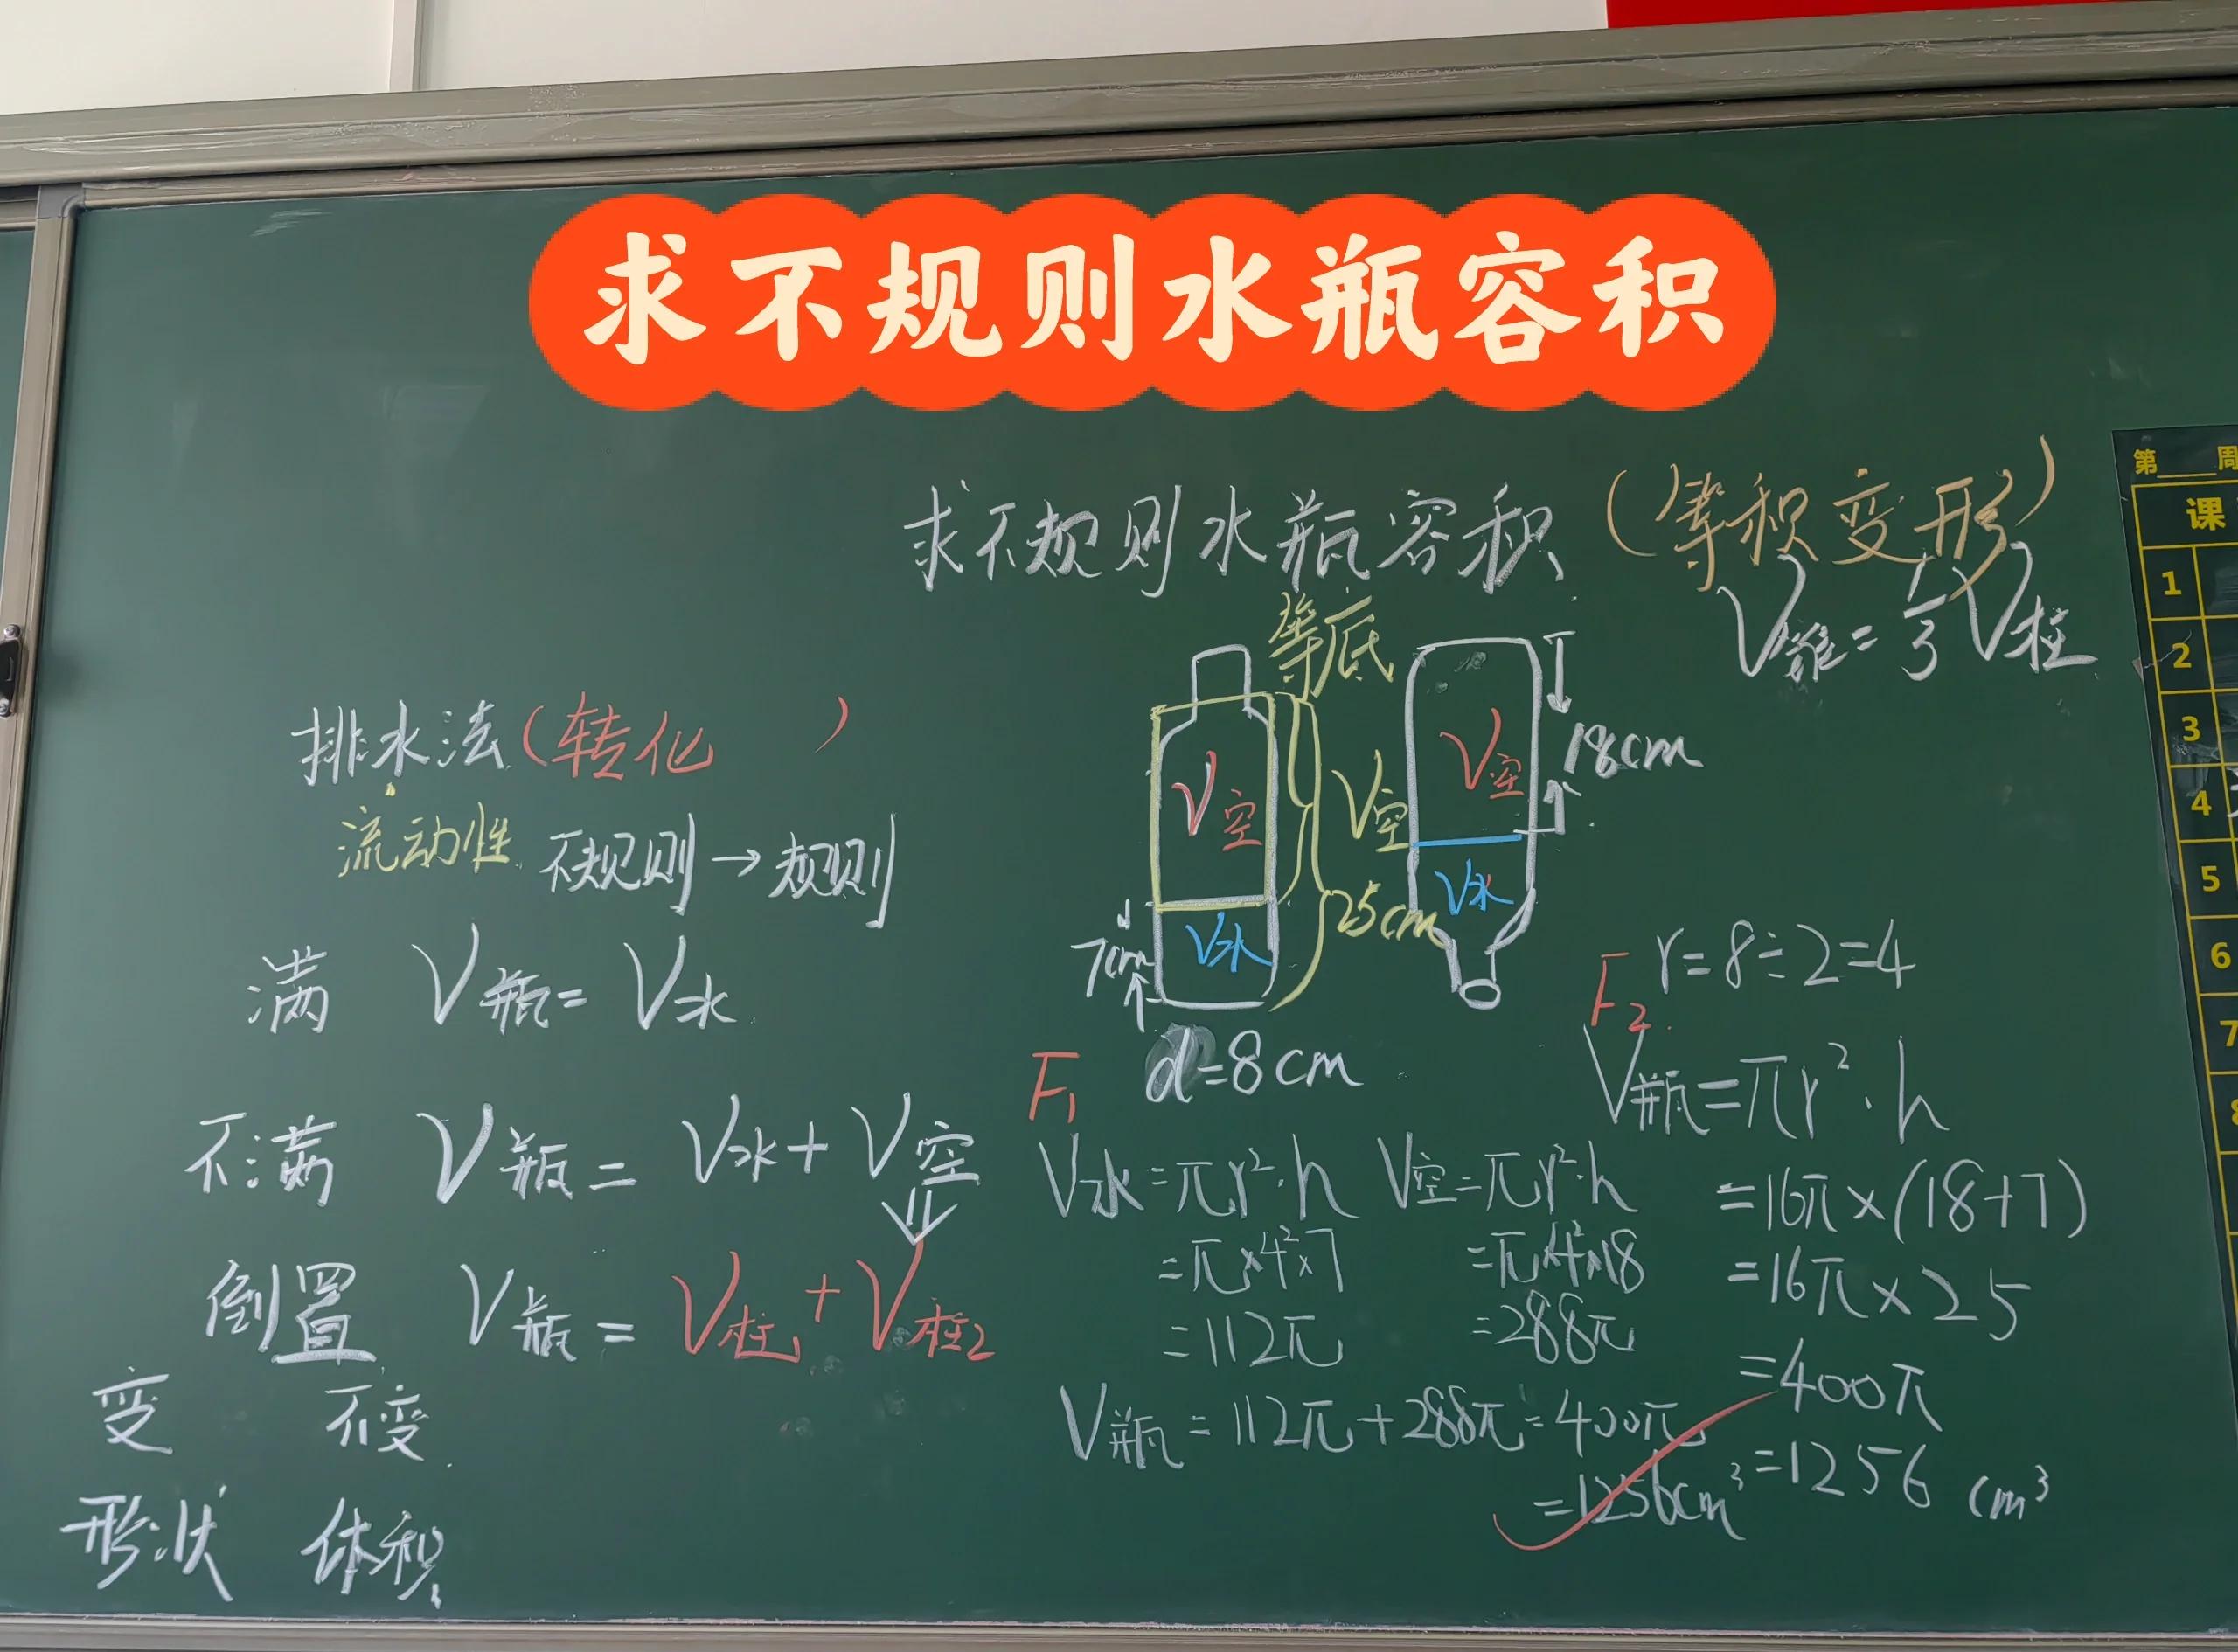 求不规则水瓶容积
求不规则水瓶容积 (等积变形)
V锥=1/3V柱
等底
排水法(转化 )
流动性 不规则→规则
满 V瓶=V水
不满 V瓶=V水+V空
倒置 V瓶=V柱1+V柱2
变 不变
形状 体积
V空
V水
7cm
V空
25cm
V空
V水
18cm
d=8cm
F1
V水=πr²·h
=π×4²×7
=112π
V空=πr²·h
=π×4²×18
=288π
V瓶=112π+288π=400π
=1256cm³
F2 r=8÷2=4
V瓶=πr²·h
=16π×(18+7)
=16π×25
=400π
=1256 cm³
第 周
课
1
2
3
4
5
6
7
8